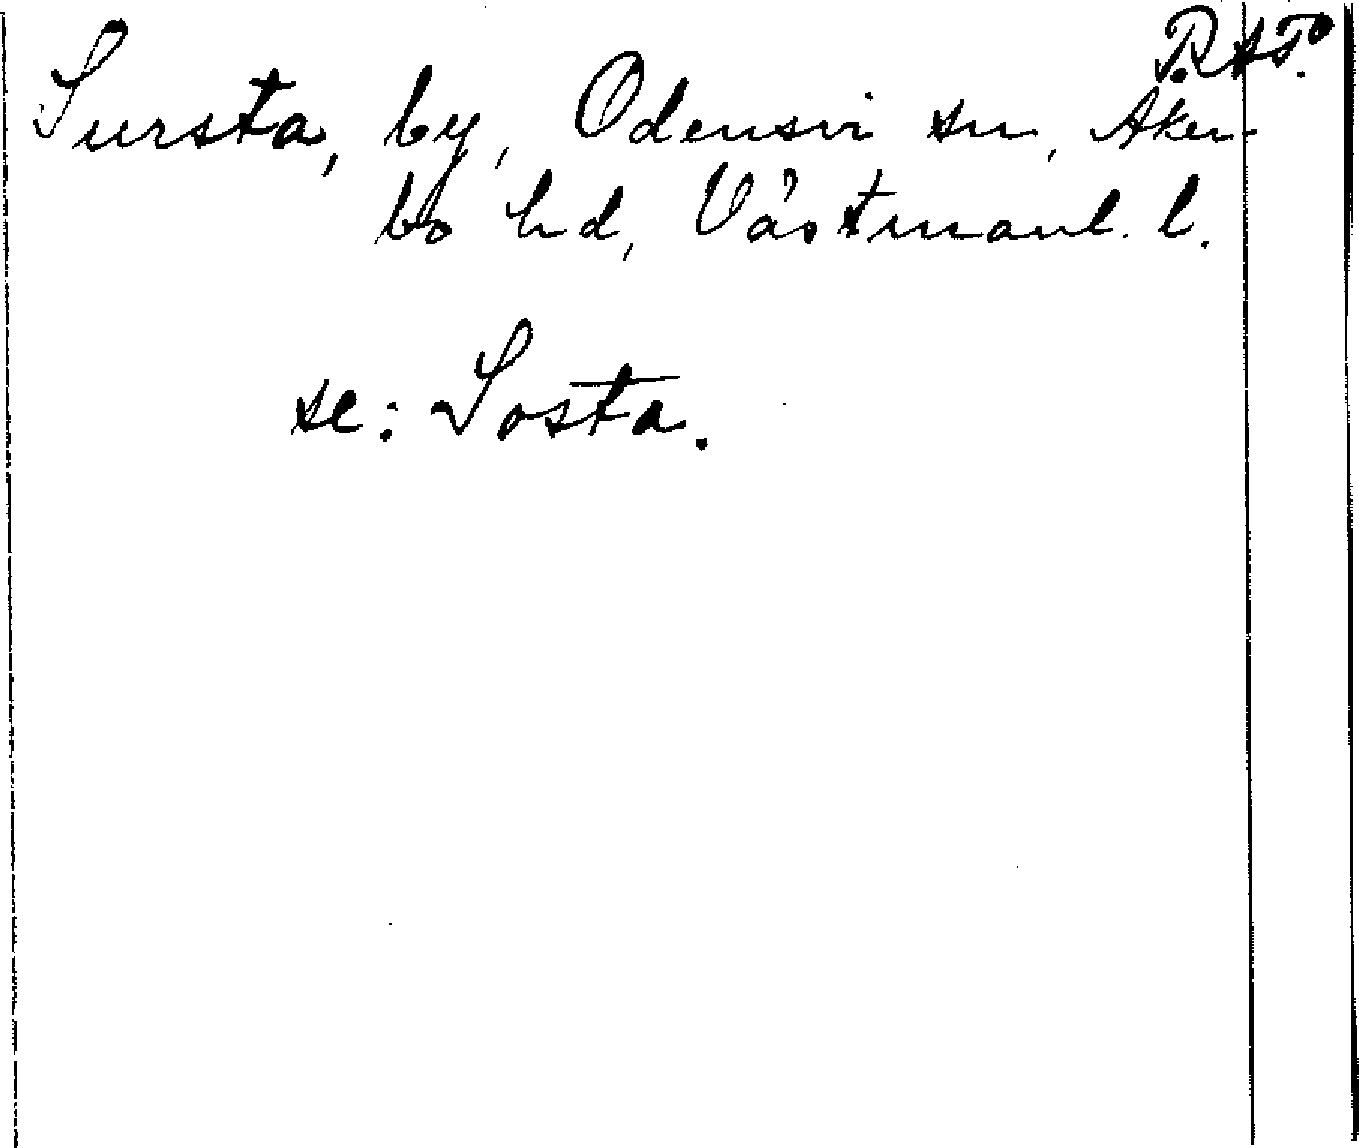 Sursta, by, Odensvi sn, Åker-
bo hd, Västmanl. l.
se: Sosta.